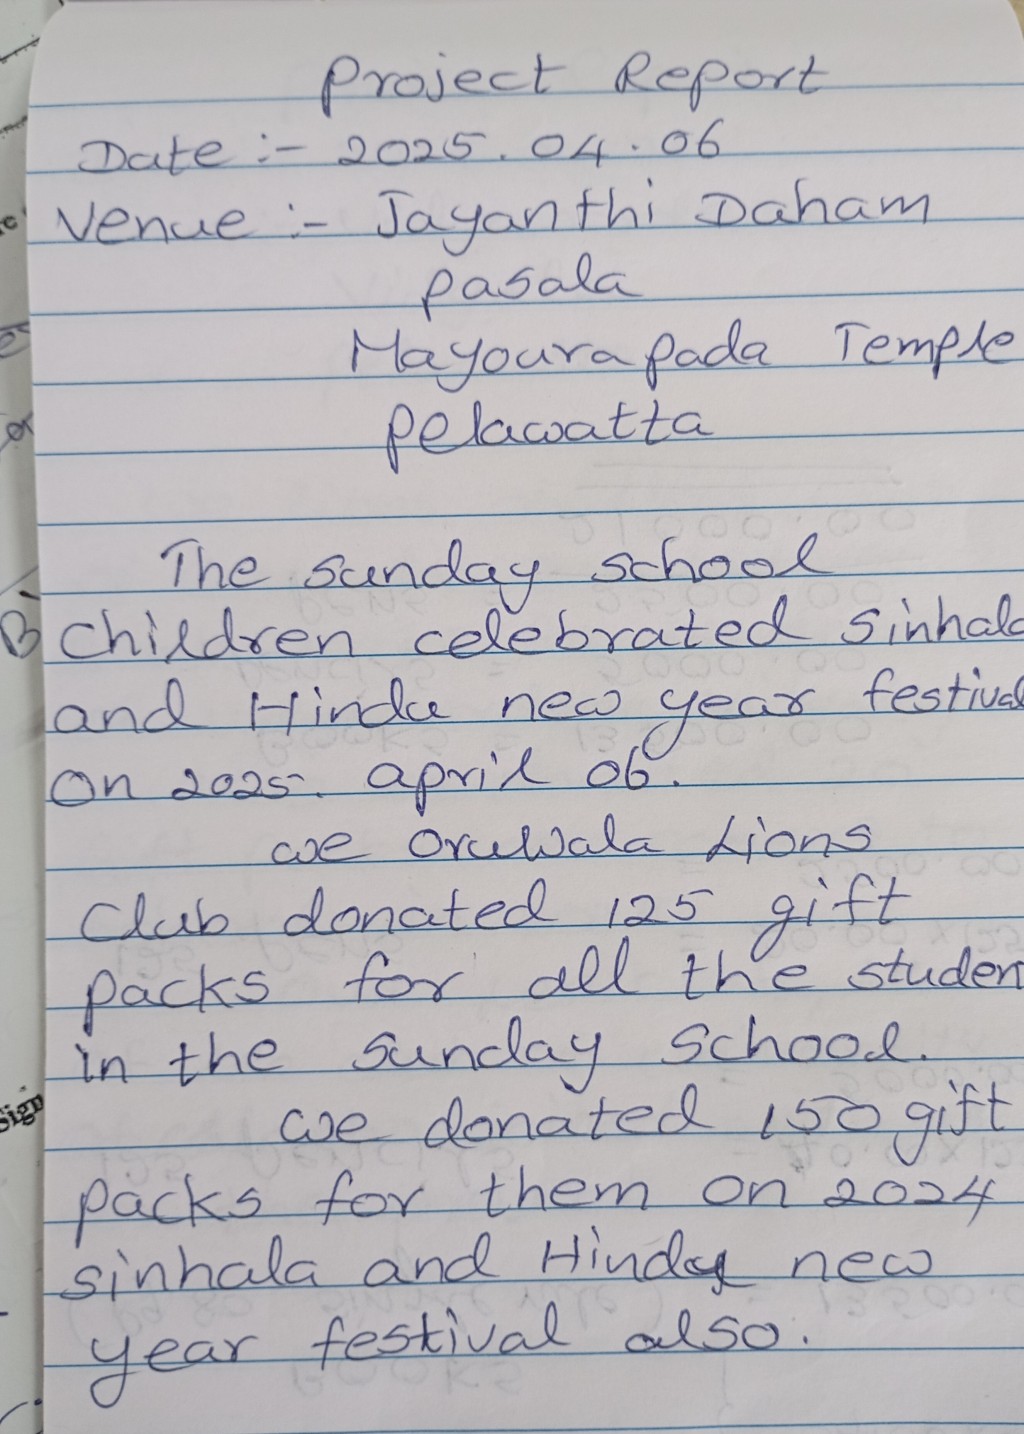 Project Report
Date :- 2025.04.06
Venue :- Jayanthi Daham
pasala
Mayourapada Temple
Pelawatta
The sunday school
children celebrated sinhala
and Hindu new year festival
on 2025. april 06.
we Oruwala Lions
Club donated 125 gift
packs for all the studen
in the sunday school.
we donated 150 gift
packs for them on 2024
sinhala and Hindu new
year festival also.